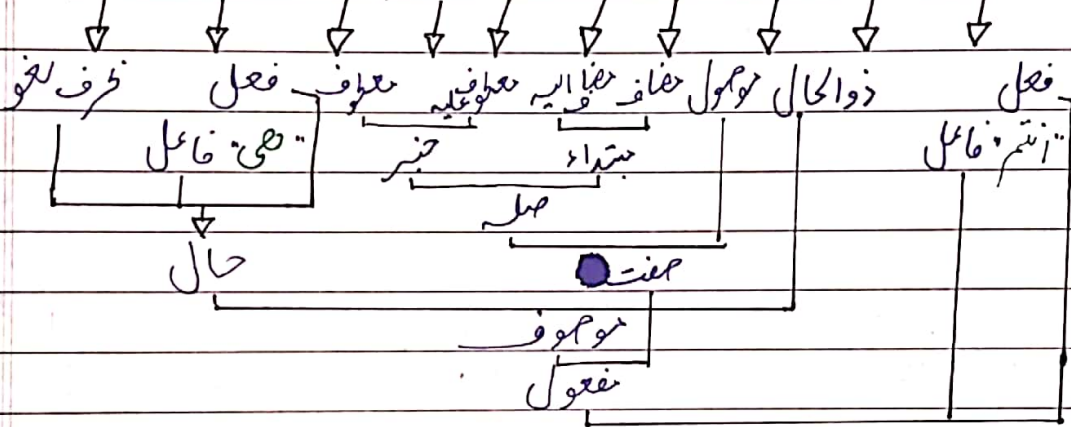 فعل ذوالحال موصول مضاف مضاف الیہ معطوف علیہ معطوف فعل ظرف لغو
"انتم" فاعل مبتداء خبر "ھی" فاعل
صلہ
صفت حال
موصوف
مفعول